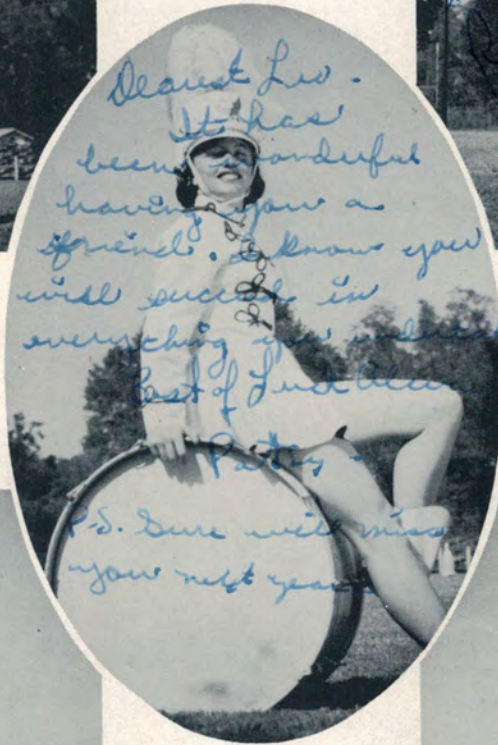 Dearest Leo.
It has
been wonderful
having you a
friend. I know you
will succeed in
everything you
Best of Luck Always
Patsy -
P.S. Sure will miss
you next year.